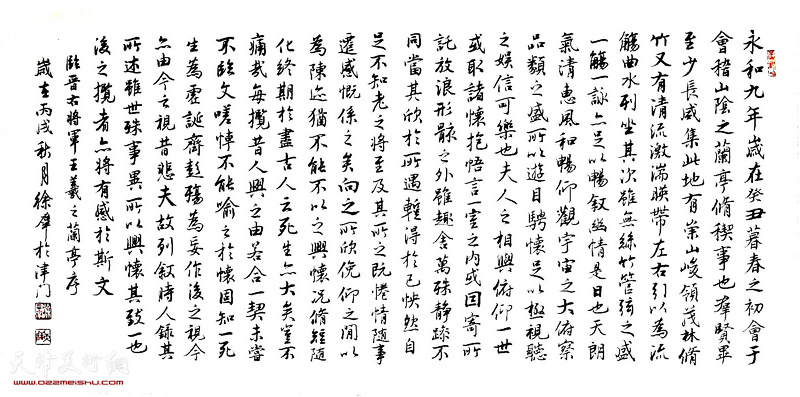 永和九年歲在癸丑暮春之初會于
會稽山陰之蘭亭脩稧事也羣賢畢
至少長咸集此地有崇山峻領茂林脩
竹又有清流激湍暎帶左右引以為流
觴曲水列坐其次雖無絲竹管弦之盛
一觴一詠亦足以暢叙幽情是日也天朗
氣清惠風和暢仰觀宇宙之大俯察
品類之盛所以遊目騁懷足以極視聽
之娛信可樂也夫人之相與俯仰一世
或取諸懷抱悟言一室之內或因寄所
託放浪形骸之外雖趣舍萬殊靜躁不
同當其欣於所遇暫得於己怏然自
足不知老之將至及其所之既惓情隨事
遷感慨係之矣向之所欣俛仰之閒以
為陳迹猶不能不以之興懷況脩短隨
化終期於盡古人云死生亦大矣豈不
痛哉每攬昔人興之由若合一契未嘗
不臨文嗟悼不能喻之於懷固知一死
生為虛誕齊彭殤為妄作後之視今
亦由今之視昔悲夫故列叙時人錄其
所述雖世殊事異所以興懷其致一也
後之攬者亦將有感於斯文
臨晉右將軍王羲之蘭亭序
歲在丙戌秋月徐犀於津门
天津美術網
www.022meishu.com